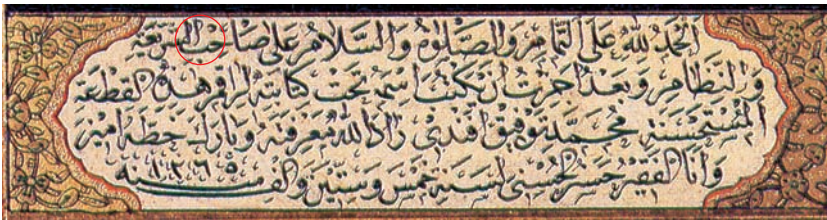 الحمد لله على التمام والصلوة والسلام على صاحب الشريعة
والنظام وبعد اجزت ان يكتب اسمه تحت كتابته لراقم هذه القطعة
المستحسنة محمد توفيق افندى زاد الله معرفته وبارك خطه امين
وانا الفقير حسن الحسنى لسنة خمس وستين والف سنه ١٢٦٥